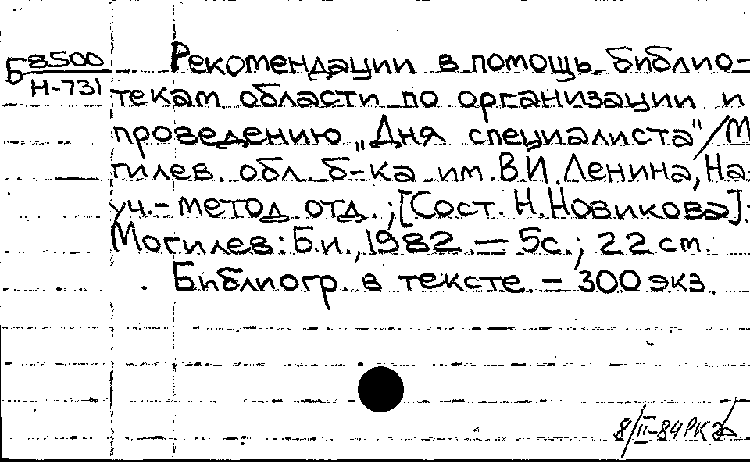 Б 8500
Н-731
Рекомендации в помощь библио-
текам области по организации и
проведению „Дня специалиста"/М
гилев. обл. б-ка им. В.И. Ленина, На-
уч.-метод отд.; [Сост. Н. Новикова].
Могилев: Б.и., 1982. — 5с.; 22 см.
Библиогр. в тексте. - 300 экз.
8/II-84